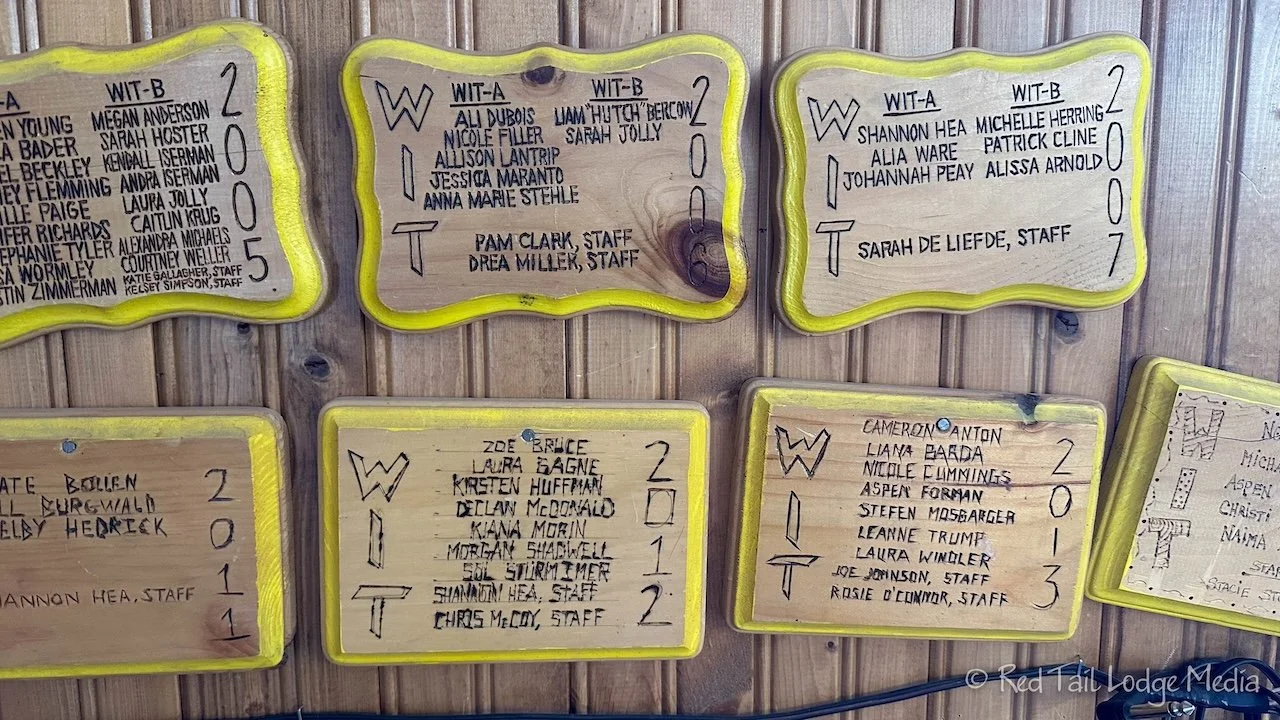 WIT-B 2
YOUNG MEGAN ANDERSON
BADER SARAH HOSTER 0
BECKLEY KENDALL ISERMAN
FLEMMING ANDRA ISERMAN 0
PAIGE LAURA JOLLY
RICHARDS CAITLIN KRUG
TYLER ALEXANDRA MICHAELS 5
WORMLEY COURTNEY WELLER
ZIMMERMAN KATIE GALLAGHER, STAFF
KELSEY SIMPSON, STAFF
W WIT-A WIT-B 2
ALI DUBOIS LIAM "HUTCH" BERCOW
NICOLE FILLER SARAH JOLLY
I ALLISON LANTRIP 0
JESSICA MARANTO
ANNA MARIE STEHLE 0
T PAM CLARK, STAFF 6
DREA MILLER, STAFF
W WIT-A WIT-B 2
SHANNON HEA MICHELLE HERRING
ALIA WARE PATRICK CLINE 0
I JOHANNAH PEAY ALISSA ARNOLD
0
T SARAH DE LIEFDE, STAFF 7
BOLLEN 2
BURGWALD
HEDRICK 0
1
HANNON HEA, STAFF
1
W ZOE BRUCE 2
LAURA GAGNE
KIRSTEN HUFFMAN
DECLAN McDONALD 0
I KIANA MORIN
MORGAN SHADWELL 1
SOL STURMTHER
T SHANNON HEA, STAFF 2
CHRIS McCOY, STAFF
W CAMERON ANTON 2
LIANA BARDA
NICOLE CUMMINGS
ASPEN FORMAN 0
I STEFEN MOSBARGER
LEANNE TRUMP 1
T LAURA WINDLER
JOE JOHNSON, STAFF 3
ROSIE O'CONNOR, STAFF
W
MICH
I ASPEN
CHRISTI
T NAIMA
STACIE
© Red Tail Lodge Media